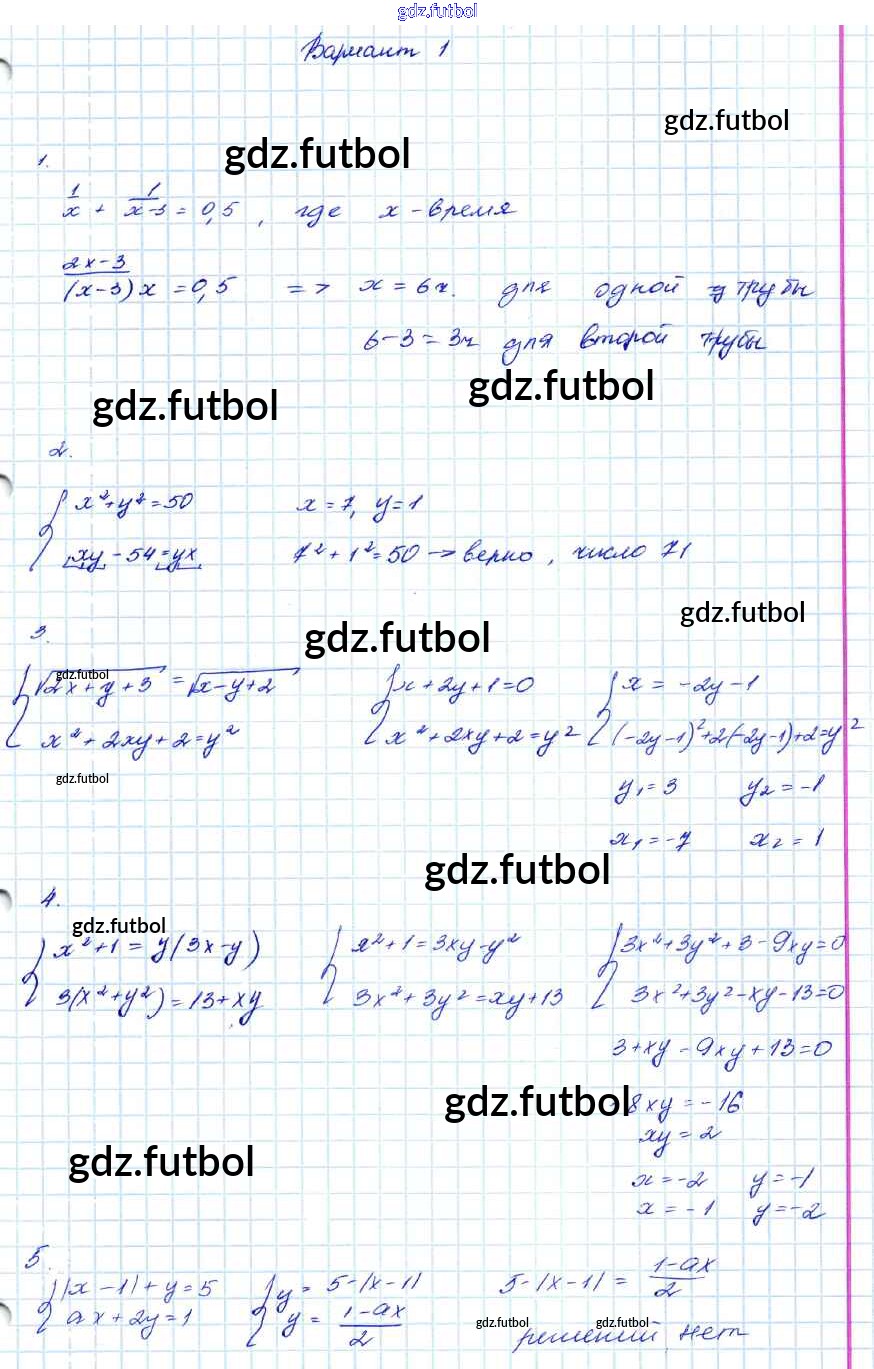 gdz.futbol
Вариант 1
gdz.futbol
gdz.futbol
1.
1/x + 1/(x-3) = 0,5, где x - время
(2x-3)/((x-3)x) = 0,5 => x = 6ч. для одной трубы
6-3 = 3ч для второй трубы
gdz.futbol
gdz.futbol
2.
x²+y²=50 x=7, y=1
xy - 54 = yx 7² + 1² = 50 → верно, число 71
gdz.futbol
gdz.futbol
3.
gdz.futbol
√2x+y+3 = √x-y+2 x+2y+1=0 x = -2y-1
x²+2xy+2=y² x²+2xy+2=y² (-2y-1)²+2(-2y-1)+2=y²
gdz.futbol
y₁=3 y₂=-1
x₁=-7 x₂=1
gdz.futbol
4.
gdz.futbol
x²+1=y(3x-y) x²+1=3xy-y² 3x²+3y²+3-9xy=0
3(x²+y²)=13+xy 3x²+3y²=xy+13 3x²+3y²-xy-13=0
3+xy-9xy+13=0
gdz.futbol
8xy=-16
xy=2
gdz.futbol
x=-2 y=-1
x=-1 y=-2
5.
|x-1|+y=5 y=5-|x-1| 5-|x-1| = (1-ax)/2
ax+2y=1 y = (1-ax)/2
gdz.futbol
gdz.futbol
решений нет